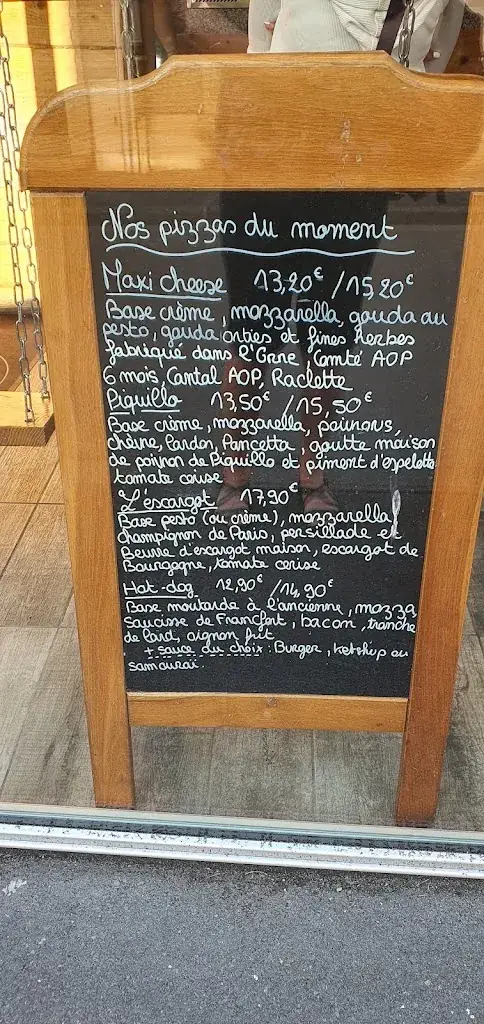 Nos pizzas du moment
Maxi cheese 13,20€ / 15,20€
Base crème, mozzarella, gouda au
pesto, gouda orties et fines herbes
fabriqué dans l'Orne, Comté AOP
6 mois, Cantal AOP, Raclette
Piquillo 13,50€ / 15,50€
Base crème, mozzarella, poivrons,
chèvre, lardon, Pancetta, goutte maison
de poivron de Piquillo et piment d'espelette
tomate cerise
L'escargot 17,90€
Base pesto (ou crème), mozzarella,
champignon de Paris, persillade et
Beurre d'escargot maison, escargot de
Bourgogne, tomate cerise
Hot-dog 12,90€ / 14,90€
Base moutarde à l'ancienne, mozza,
saucisse de Francfort, bacon, tranche
de lard, oignon frit
+ sauce au choix : Burger, ketchup ou
samouraï.